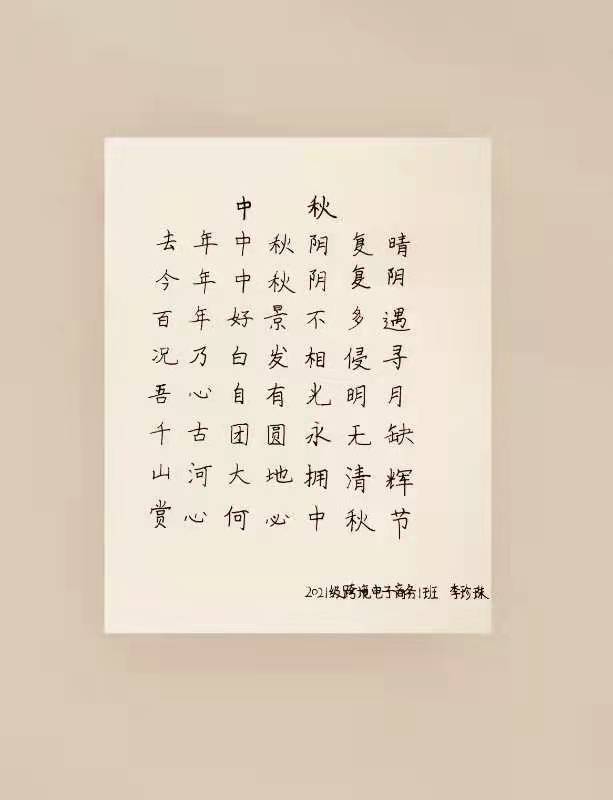 中秋
去年中秋阴复晴
今年中秋阴复阴
百年好景不多遇
况乃白发相侵寻
吾心自有光明月
千古团圆永无缺
山河大地拥清辉
赏心何必中秋节
2021级跨境电子商务1班 李珍珠